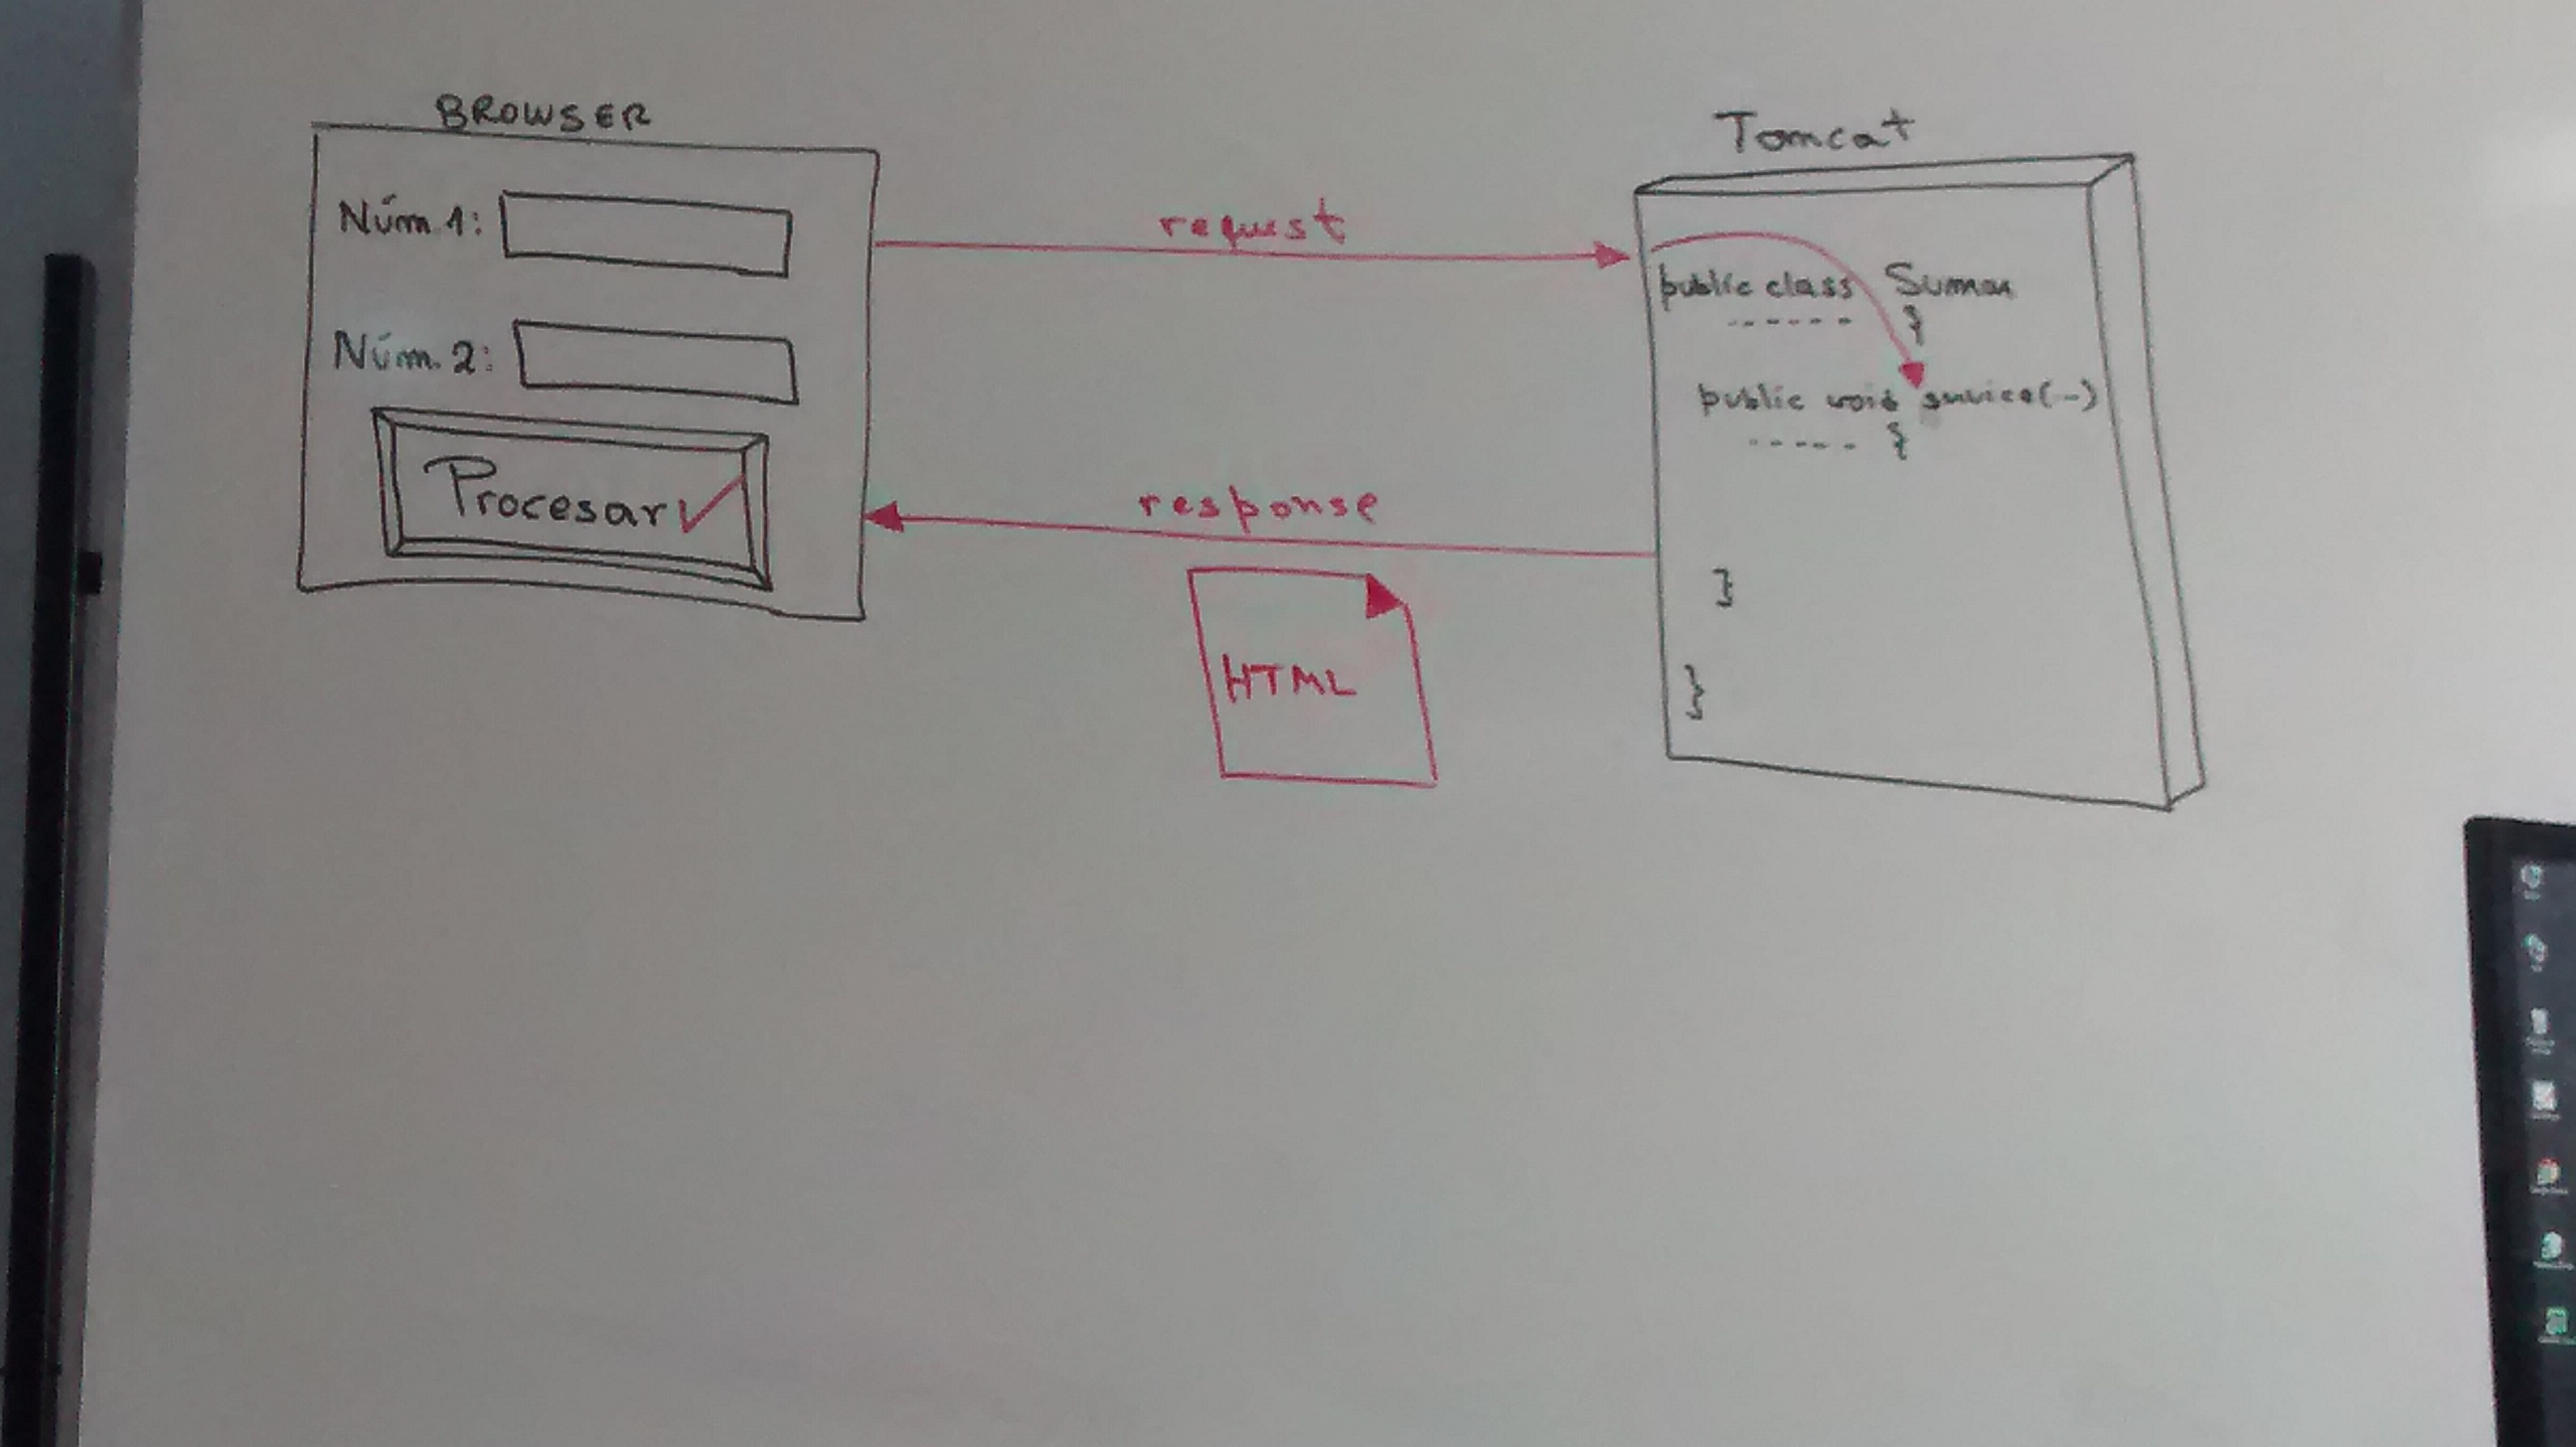 BROWSER
Núm.1:
Núm.2:
Procesar
request
response
HTML
Tomcat
public class Sumar
------ {
public void service(--)
----- {
}
}